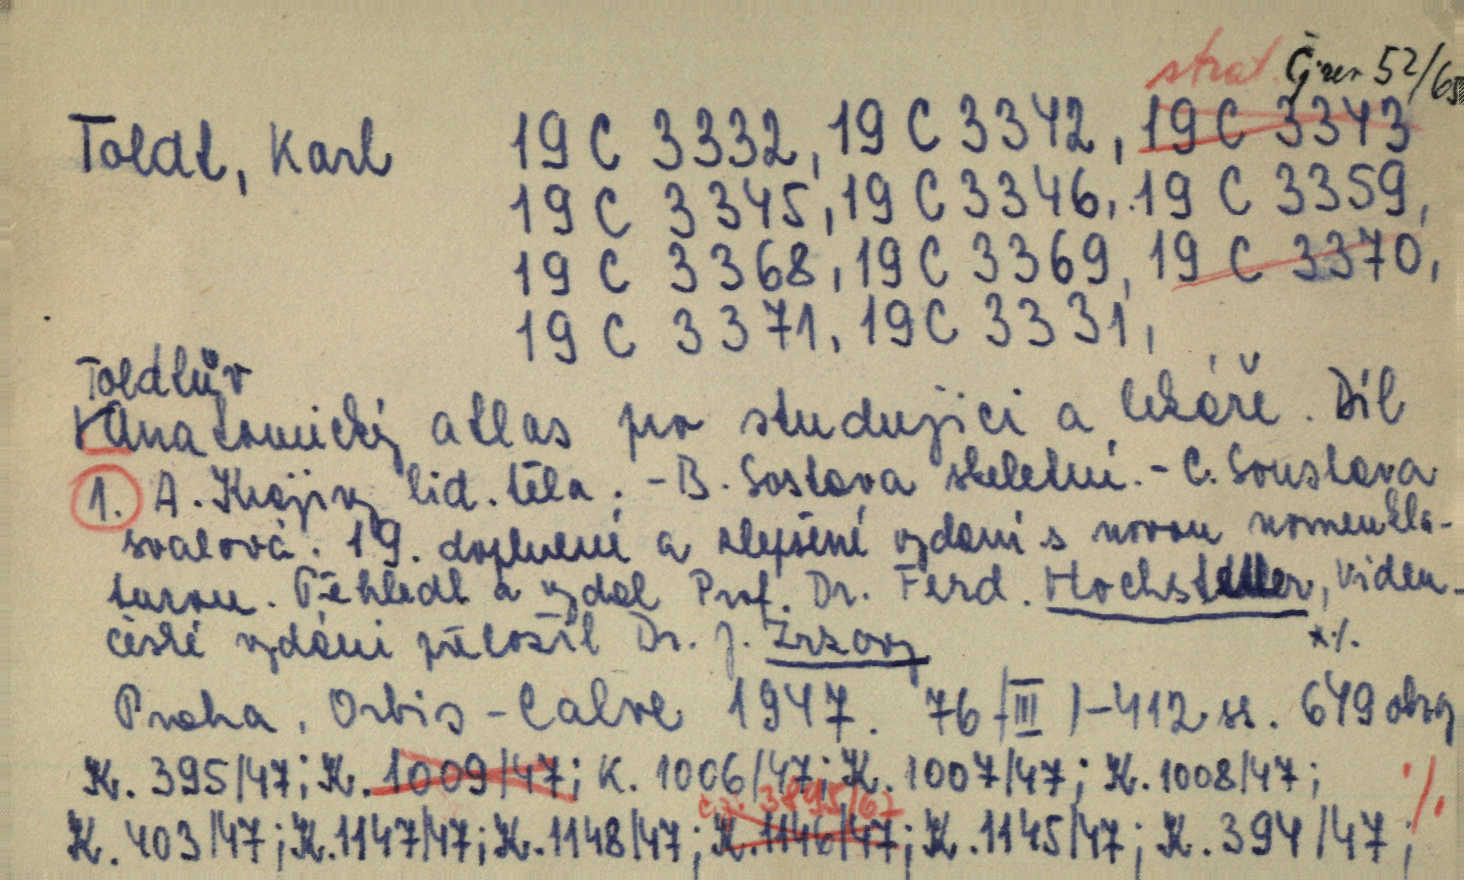 strat. Č. rev 52/65
Toldt, Karl 19 C 3332, 19 C 3342, 19 C 3343
19 C 3345, 19 C 3346, 19 C 3359,
19 C 3368, 19 C 3369, 19 C 3370,
19 C 3371, 19 C 3331,
Toldtův
Anatomický atlas pro studující a lékaře. Díl
1. A. Krajiny lid. těla. - B. Sostava skeletní. - C. Soustava
svalová. 19. doplněné a zlepšené vydání s novou nomenkla-
turou. Přehlédl a vydal Prof. Dr. Ferd. Hochstetter, Vídeň.
české vydání přeložil Dr. J. Žrzavý *./.
Praha, Orbis - Calve 1947. 76 /III/ - 412 ss. 649 obry
K. 395/47; K. 1009/47; K. 1006/47; K. 1007/47; K. 1008/47; ./.
č.z. 3895/67
K. 403/47; K. 1147/47; K. 1148/47; K. 1146/47; K. 1145/47; K. 394/47;